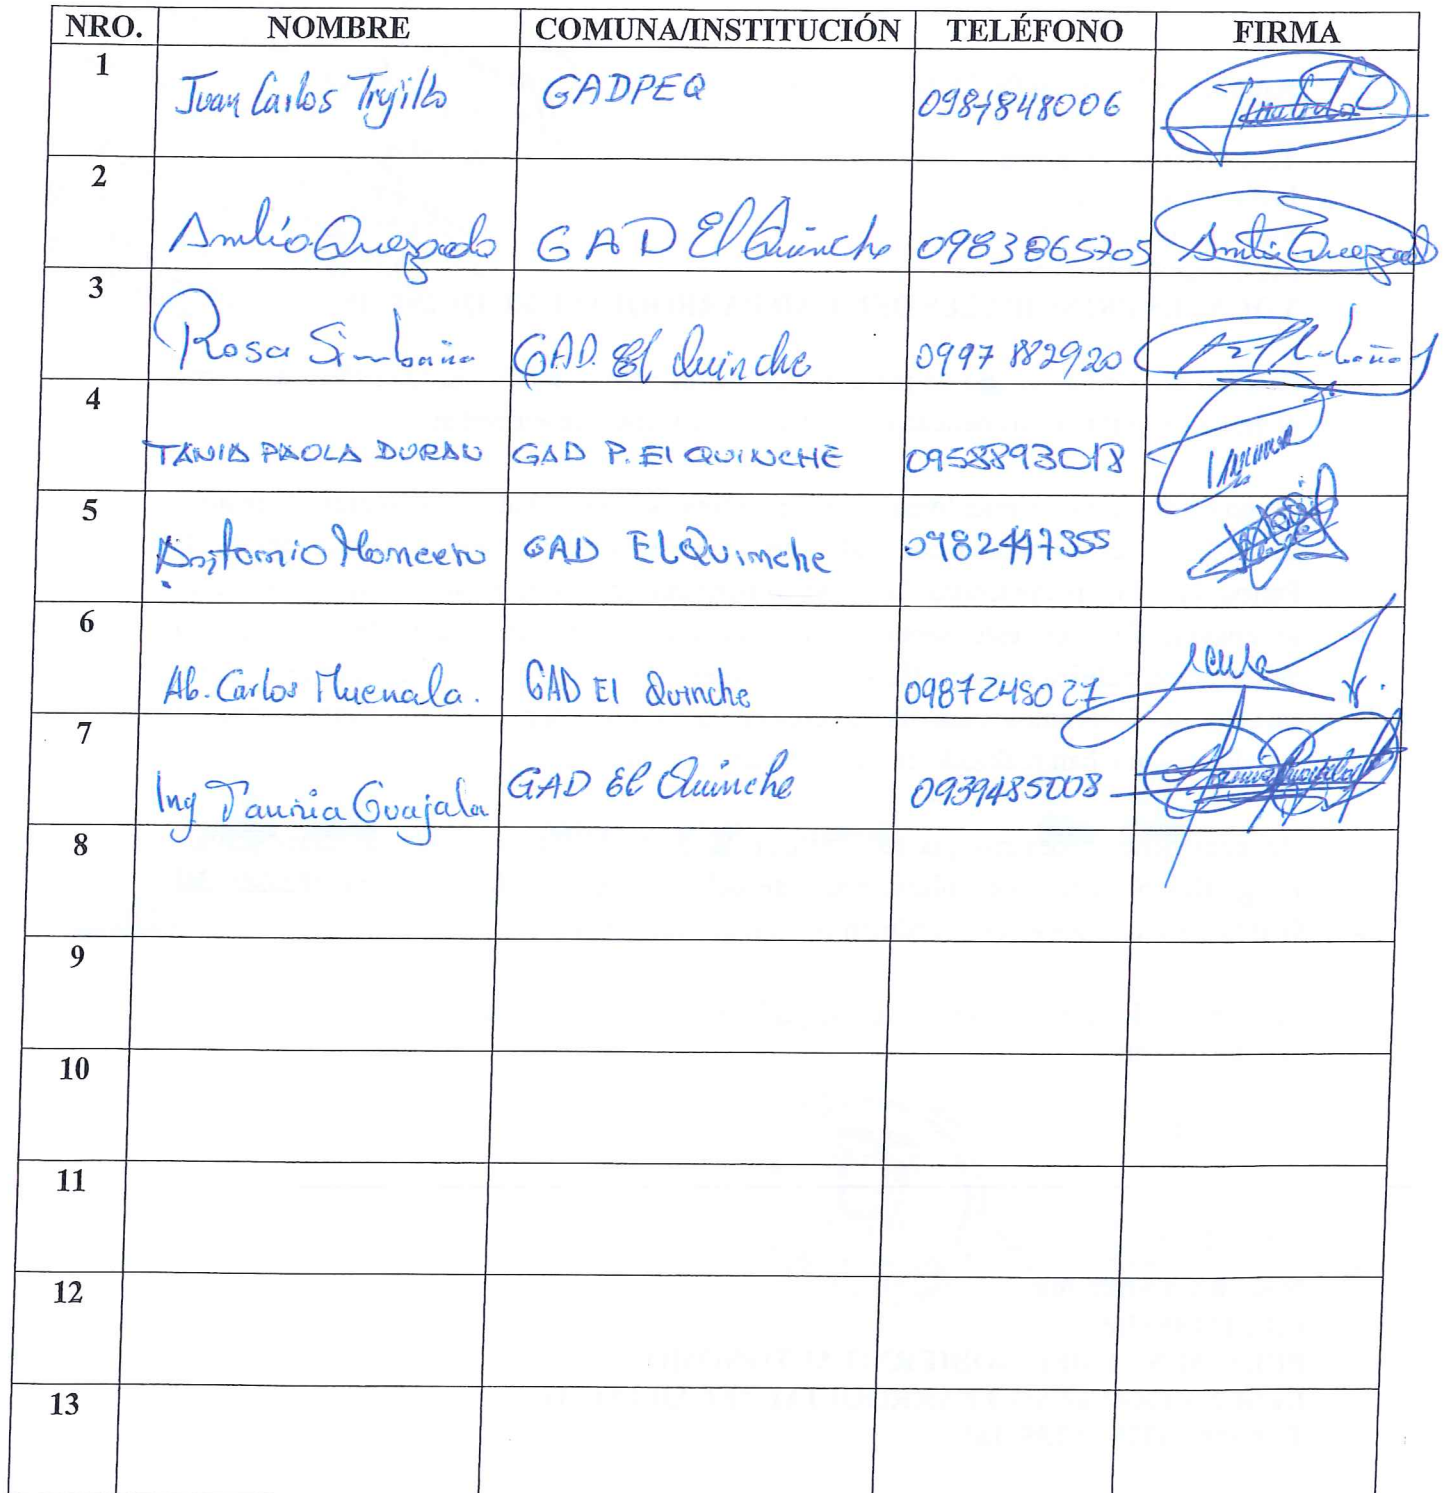 NRO. NOMBRE COMUNA/INSTITUCIÓN TELÉFONO FIRMA
1 Juan Carlos Trujillo GADPEQ 0987848006
2 Quezada GAD El Quinche 0983865705
3 Rosa Simbaña GAD. El Quinche 0997882920
4 TANIA PAOLA DURAN GAD P. El QUINCHE 0958893018
5 Antonio GAD EL Quinche 0982447355
6 Ab. Carlos Muenala. GAD El Quinche 0987248027
7 Ing Guajala GAD El Quinche 0939485008
8
9
10
11
12
13